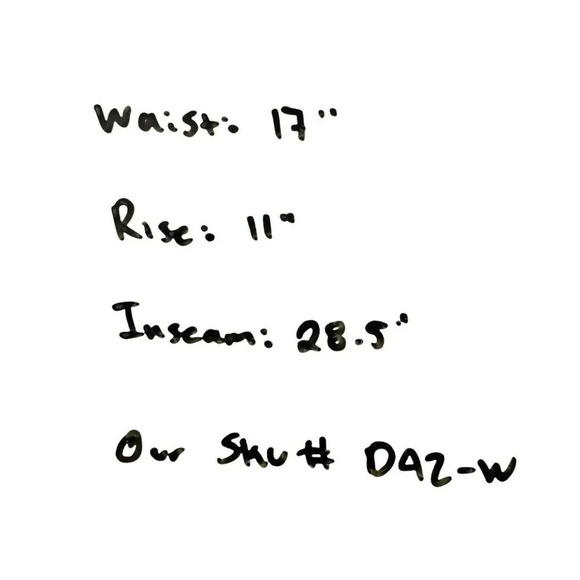 Waist: 17"
Rise: 11"
Inseam: 28.5"
Our Sku# DA2-W